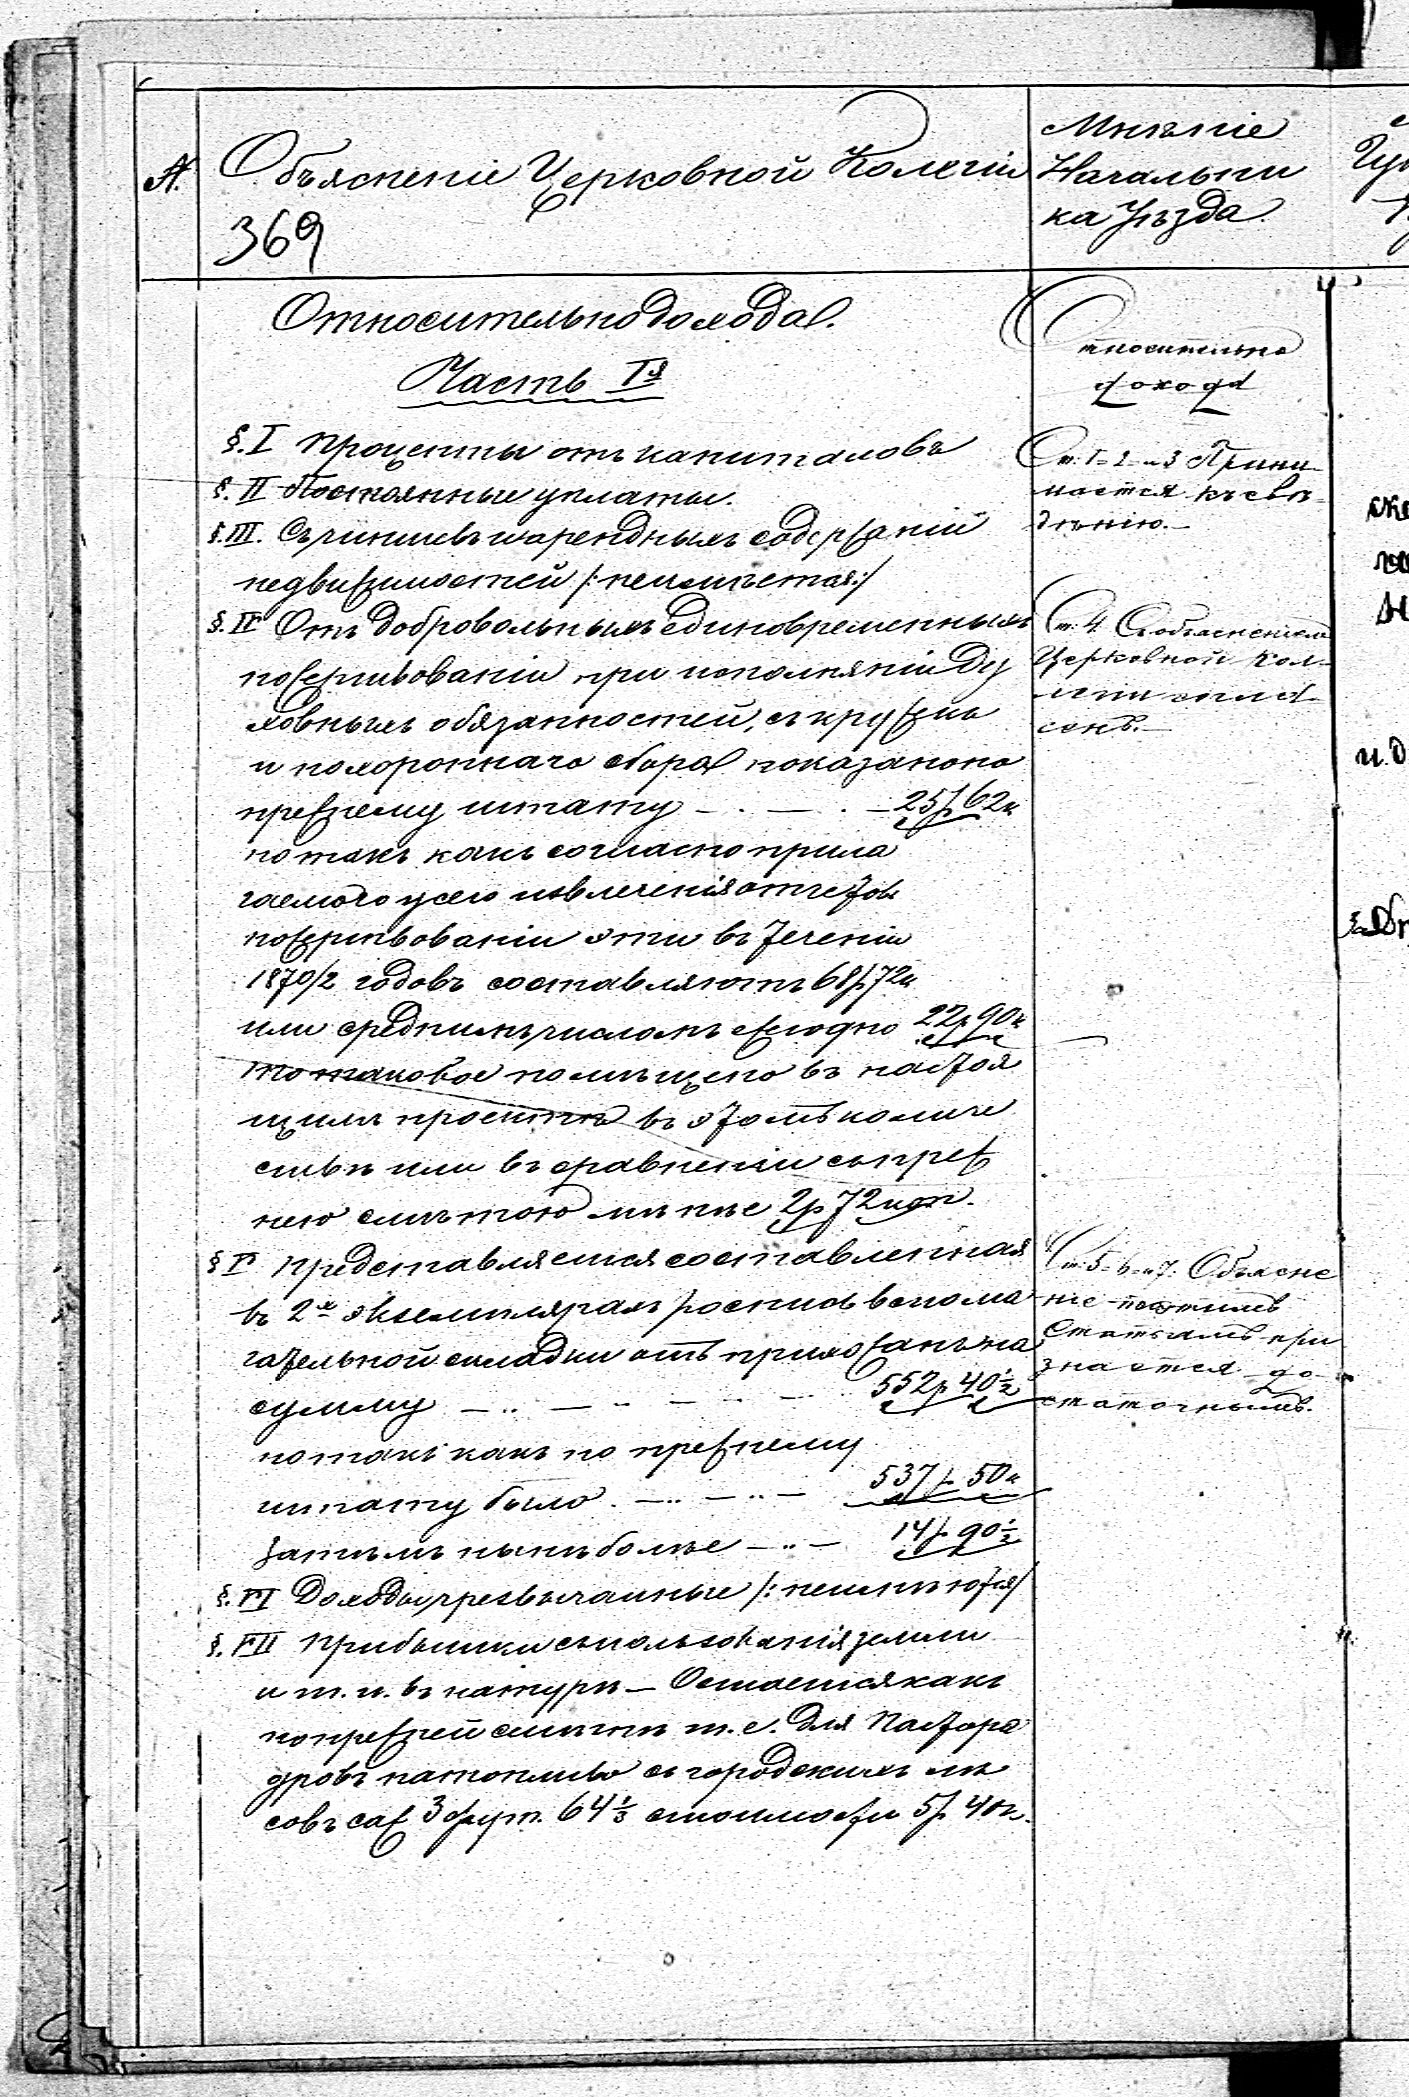 №.
Объясненіе Церковной Колегіи
369
Мнѣніе
Начальни
ка Уѣзда.
Относительно дохода.
Часть Iя
§. I Проценты отъ капиталовъ
§. II Постоянные уплаты.
§. III. Съ чиншевъ и арендныхъ содержаній
недвижимостей /: неимѣется :/
§. IV Отъ добровольныхъ единовременныхъ
пожертвованіи при исполненіи Ду
ховныхъ обязанностей, съ кружекъ
и похороннаго сбора показано по
прежнему штату — . — . — 25р 62к
но такъ какъ согласно прила
гаемого у сего извлеченія отчетовъ
пожертвованіи эти въ теченіи
1870/2 годовъ составляютъ 68р 72к
или среднимъ числомъ ежегодно 22р 90к
то таковое помѣщено въ настоя
щимъ проектѣ въ этомъ количе
ствѣ или въ сравненіи съ преж
нею смѣтою мѣнѣе 2р 72 коп.
§ V Представляется составленная
въ 2х экземплярахъ роспись вспома
гательной складки отъ прихожанъ на
сумму — .. — .. — .. — 552р 40½
но такъ какъ по прежнему
штату было . — .. — .. — 537р 50к
затѣмъ нынѣ болѣе — .. — 14р 90½
§. VI Доходы чрезвычайные /: неимѣются /
§. VII Прибытки съ пользованія земли
и т. п. въ натурѣ — Остается какъ
по прежней смѣтѣ т. е. для Пастора
дровъ на топливо съ городскихъ лѣ
совъ саж 3 фут. 64⅓ стоимости 5р 40к.
Относительно
дохода
Ст. 1-2- и 3 Прини
мается къ свѣ-
дѣнію. —
Ст. 4. Съ объясненіемъ
Церковной Кол-
легіи соглa-
сенъ. —
Ст. 5-6- и 7. Объясне
ніе по этимъ
Статьямъ при
знается до-
статочнымъ.